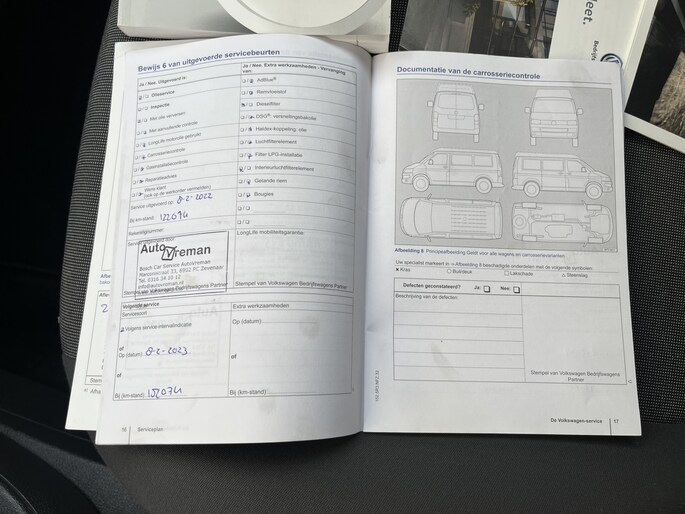 leet.
Bedrijf
Bewijs 6 van uitgevoerde servicebeurten
Ja / Nee. Uitgevoerd is:
Olieservice
Inspectie
Met olie verversen
Met aanvullende controle
LongLife motorolie gebruikt
Carrosseriecontrole
Gasinstallatiecontrole
Reparatieadvies
Wens klant
(ook op de werkorder vermelden)
Service uitgevoerd op: 8-2-2022
Bij km-stand: 122094
Rekeningnummer:
Auto Vreman
Bosch Car Service AutoVreman
Tel 0316 34 10 12
info@autovreman.nl
Stempel van Volkswagen Bedrijfswagens Partner
Volgende service
Servicesoort
Volgens service-intervalindicatie
of
Op (datum): 8-2-2023
of
Bij (km-stand): 152094
16 Serviceplan
Ja / Nee. Extra werkzaamheden - Vervanging
van:
AdBlue®
Remvloeistof
Dieselfilter
DSG®: versnellingsbakolie
Haldex-koppeling: olie
Luchtfilterelement
Filter LPG-installatie
Interieurluchtfilterelement
Getande riem
Bougies
LongLife mobiliteitsgarantie:
Stempel van Volkswagen Bedrijfswagens Partner
Extra werkzaamheden:
Op (datum):
of
Bij (km-stand):
Documentatie van de carrosseriecontrole
Afbeelding 6 Principeafbeelding: Geldt voor alle wagens en carrosserievarianten.
Uw specialist markeert in Afbeelding 6 beschadigde onderdelen met de volgende symbolen:
Kras
Buil/deuk
Lakschade
Steenslag
Defecten geconstateerd? Ja: Nee:
Beschrijving van de defecten:
Stempel van Volkswagen Bedrijfswagens
Partner
De Volkswagen-service 17